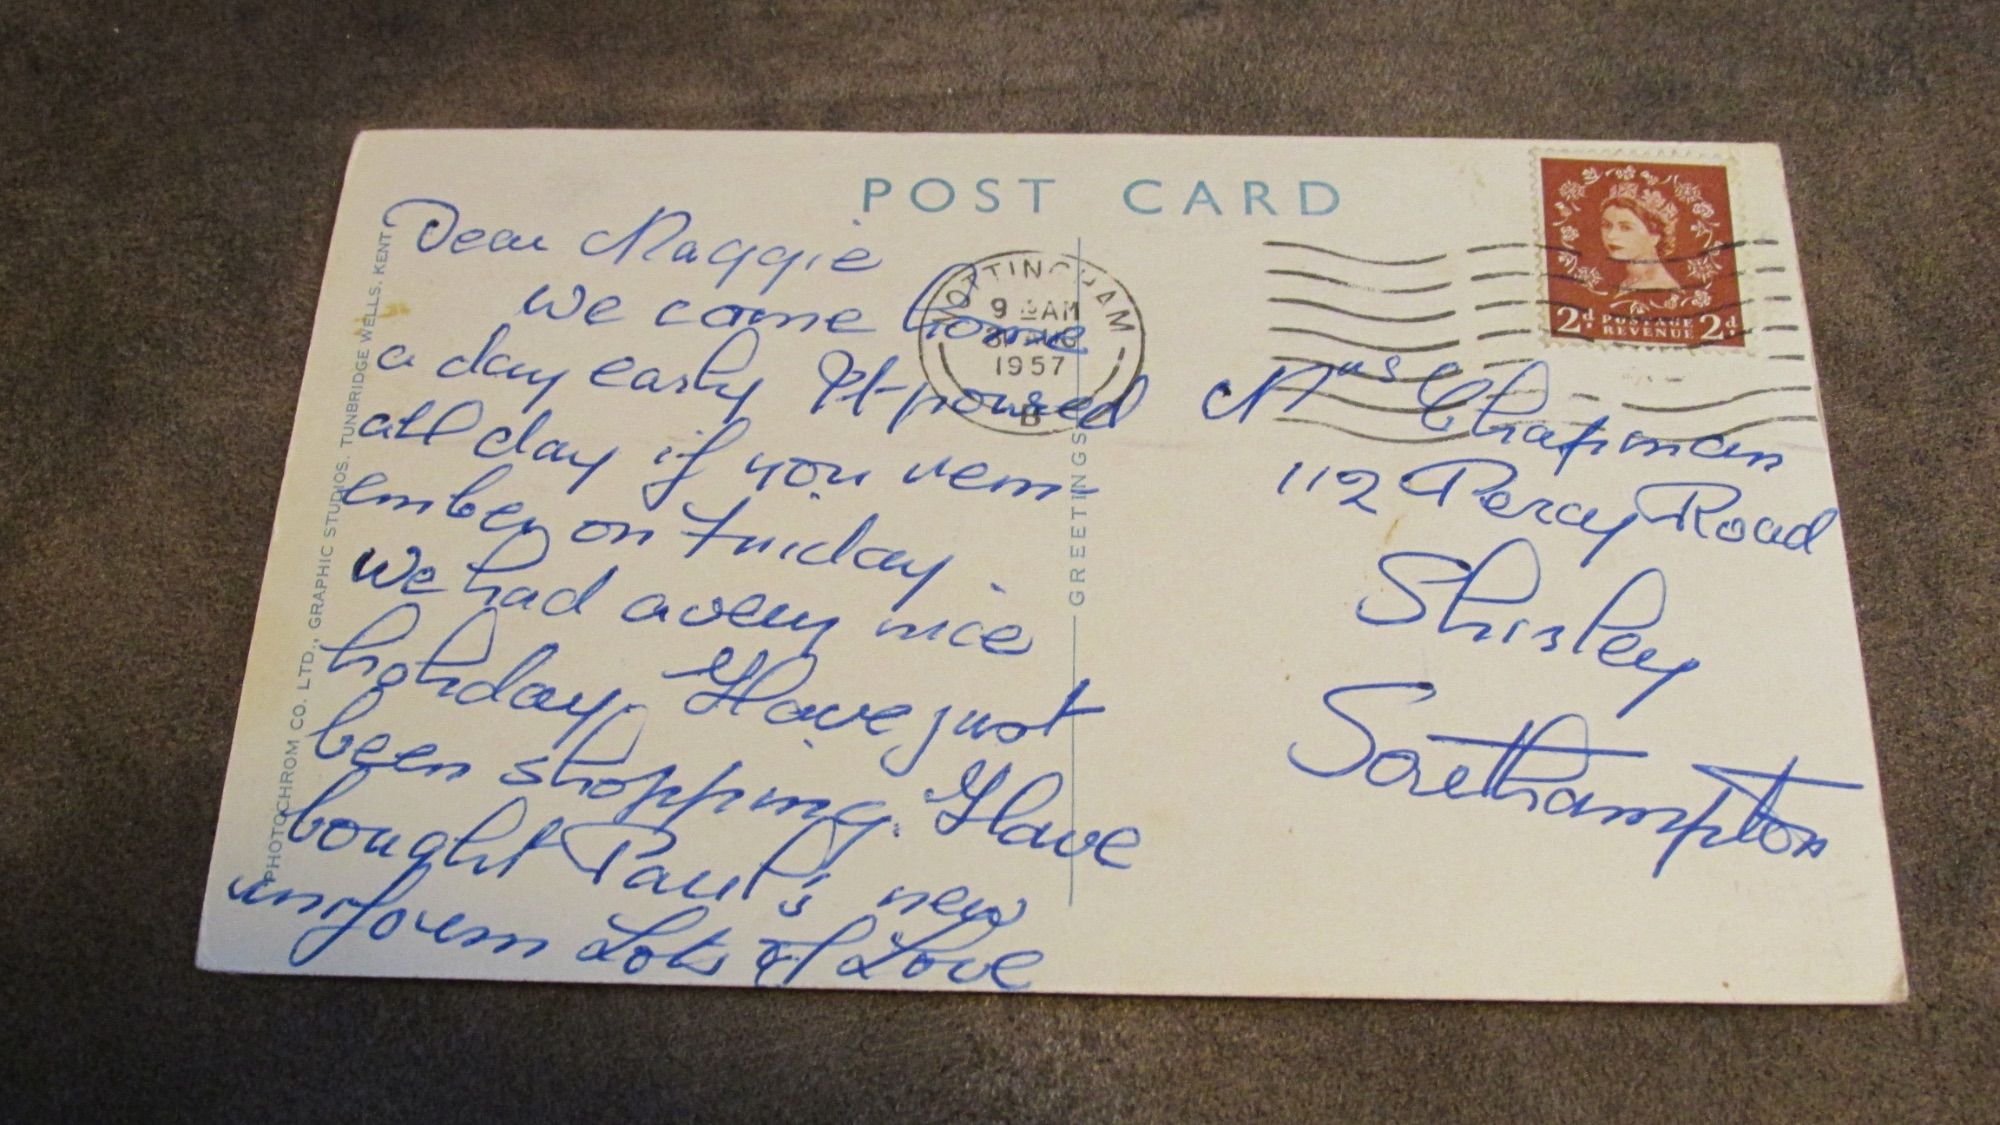 POST CARD
Dear Maggie
We come home
a day early It poured
all day if you rem-
ember on Friday.
We had a very nice
holiday. Have just
been shopping. Have
bought Paul's new
uniform Lots of Love
Mrs Chapman
112 Percy Road
Shirley
Southampton
NOTTINGHAM
9 AM
AUG
1957
B
2d POSTAGE REVENUE 2d
GREETINGS
PHOTOCHROM CO. LTD., GRAPHIC STUDIOS, TUNBRIDGE WELLS, KENT